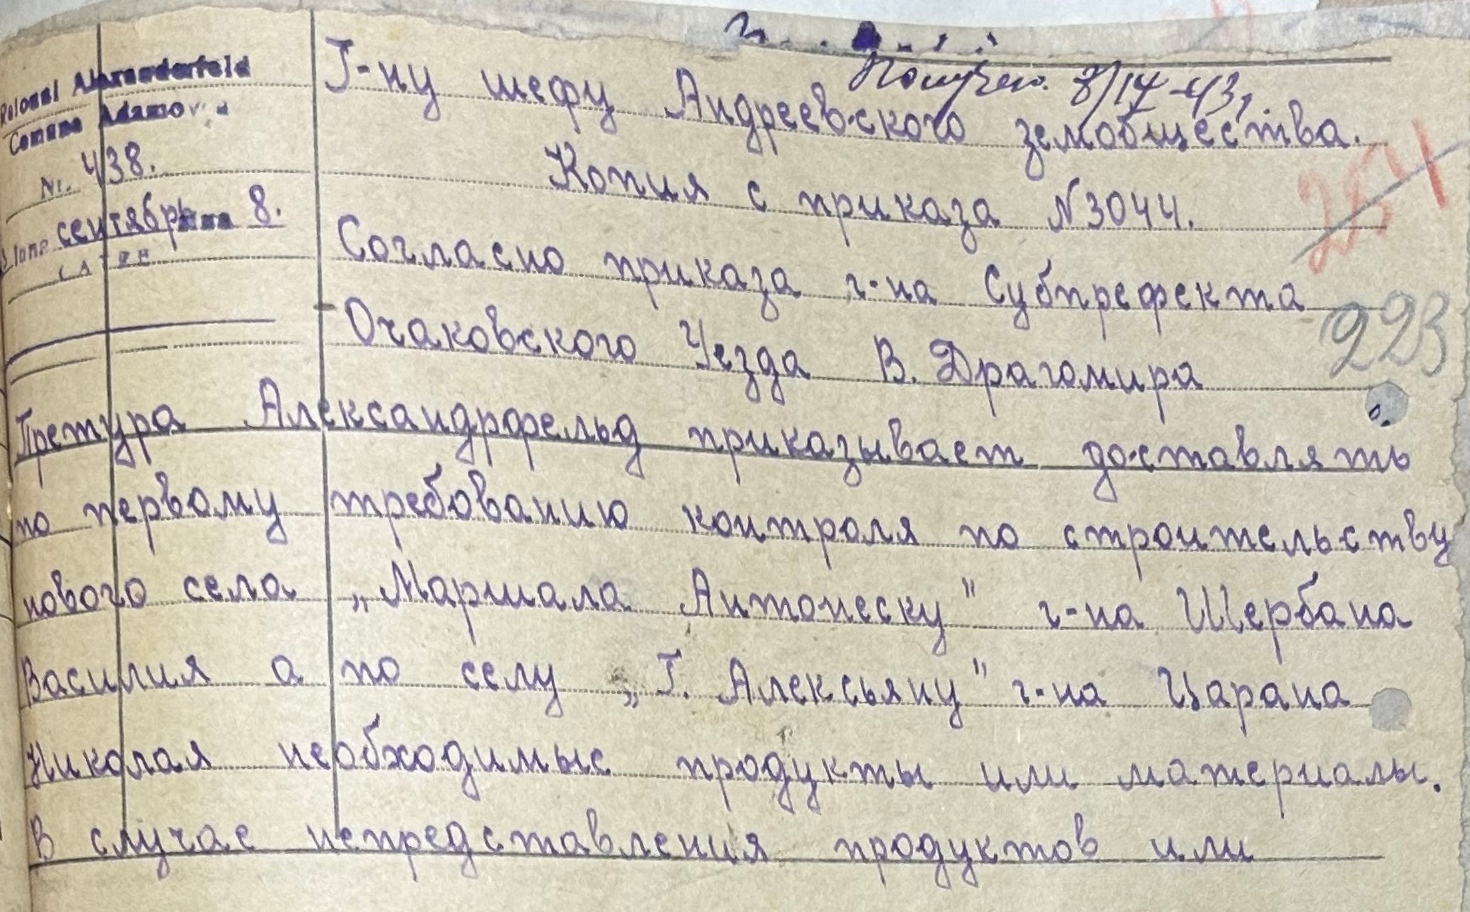 Raionul Alexanderfeld
Comuna Adamovca
Nr. 438.
Luna сентябрь ziua 8.
Получен. 8/IX-43,
Г-ну шефу Андреевского земобщества.
Копия с приказа №3044.
254
Согласно приказа г-на Субпрефекта
Очаковского Уезда В. Драгомира
223
Претура Александрфельд приказывает доставлять
по первому требованию контроля по строительству
нового села „Маршала Антонеску" г-на Щербана
Василия а по селу „Г. Алексьяну" г-на Царана
Николая необходимые продукты или материалы.
В случае непредставления продуктов или